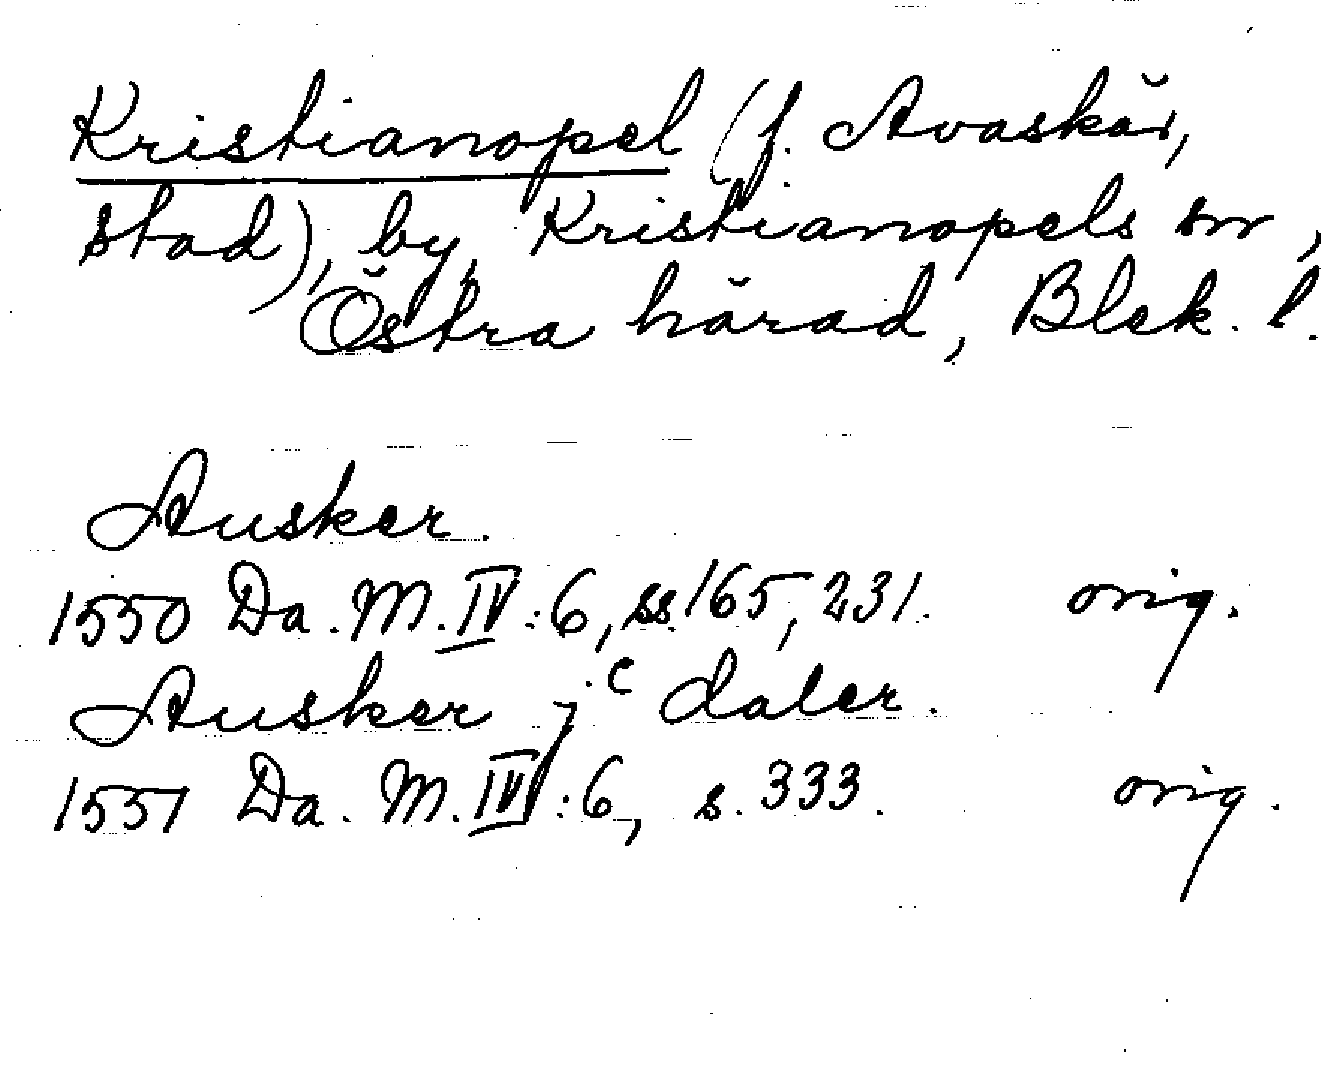 Kristianopel (f. Avaskär,
stad), by, Kristianopels sn,
Östra härad, Blek. l.
Ausker.
1550 Da. M. IV:6, ss. 165, 231. orig.
Ausker jc daler.
1551 Da. M. IV:6, s. 333. orig.